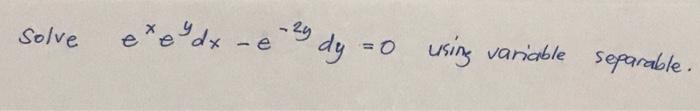 Solve e^x e^y dx - e^{-2y} dy = 0 using variable separable.